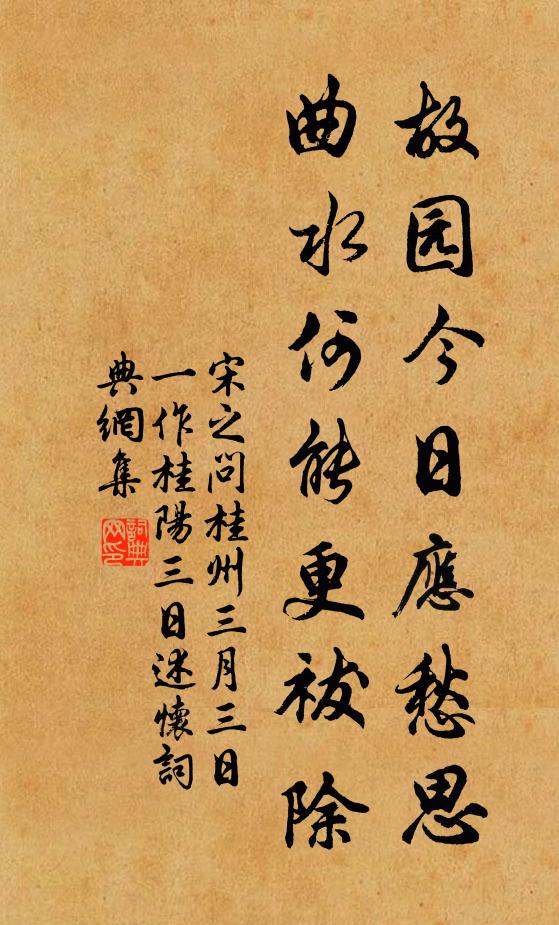 故园今日應愁思
曲水何能更祓除
宋之问桂州三月三日
一作桂陽三日述懷詞
典網集
詞典网印